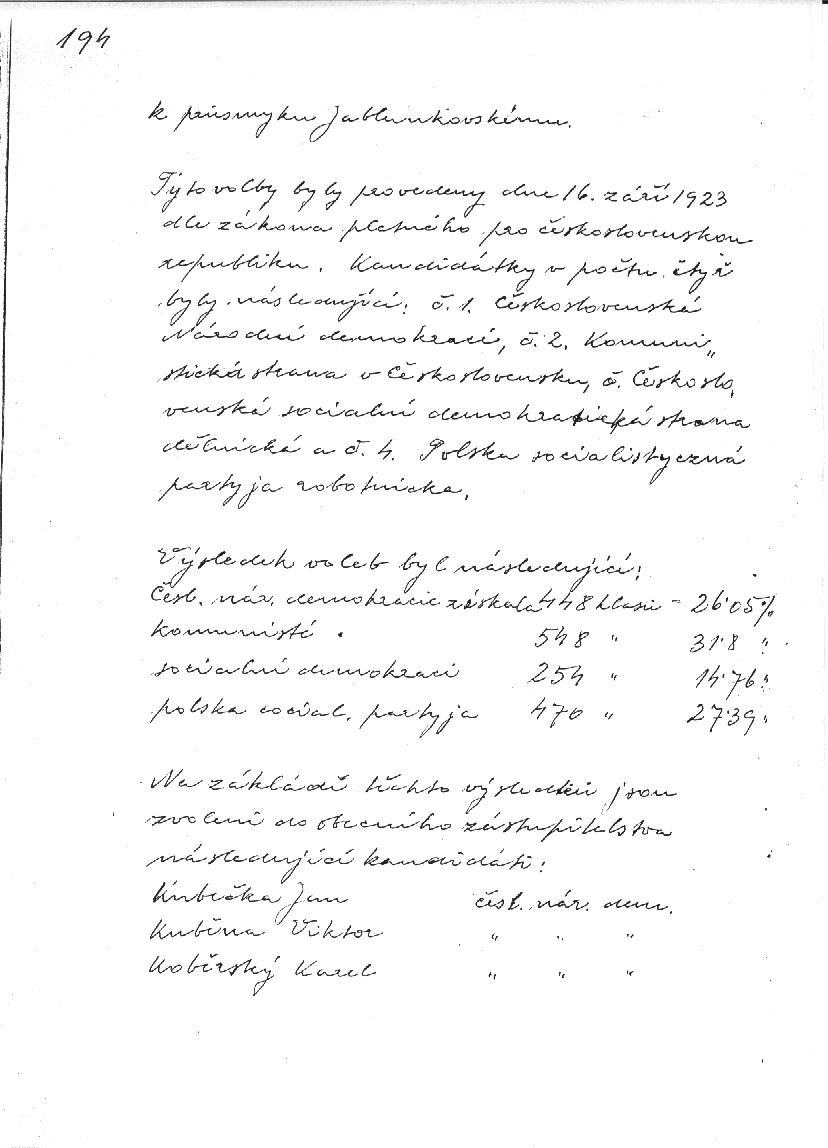 194
k průsmyku Jablunkovskému.
Tyto volby byly provedeny dne 16. září 1923
dle zákona platného pro československou
republiku. Kandidátky v počtu čtyř
byly následující: č. 1. Československá
Národní demokracie, č. 2. Komuni„
stická strana v Československu, č. Českoslo„
venská socialní demokratická strana
dělnická a č. 4. Polska socialistyczná
partyja robotnicka.
Výsledek voleb byl následující:
Česl. nár. demokracie získala 448 hlasů – 26·05%
komunisté 548 " 31·8 "
socialní demokraci 254 " 14·76 "
polska social. partyja 470 " 27·39 "
Na základě těchto výsledků jsou
zvoleni do obecního zástupitelstva
následující kandidáti:
Kubečka Jan česl. nár. dem.
Kuběna Viktor " " "
Koběrský Karel " " "